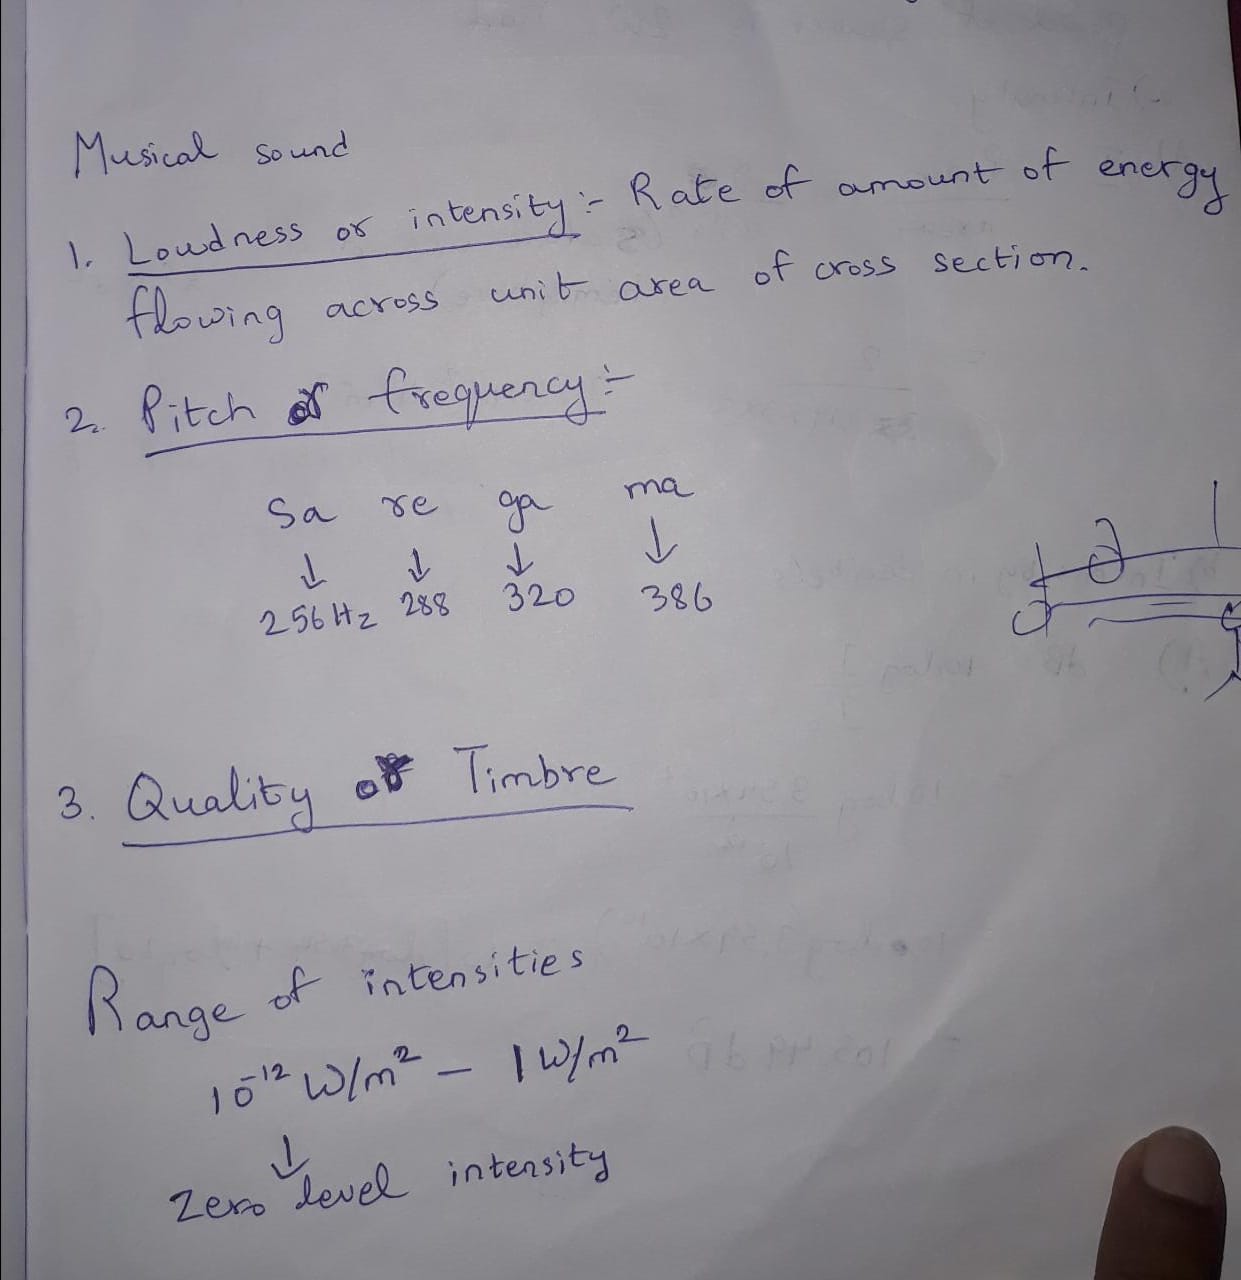 Musical sound
1. Loudness or intensity :- Rate of amount of energy
flowing across unit area of cross section.
2. Pitch or frequency :-
Sa re ga ma
↓ ↓ ↓ ↓
256 Hz 288 320 386
3. Quality or Timbre
Range of intensities
10⁻¹² W/m² – 1 W/m²
↓
Zero level intensity